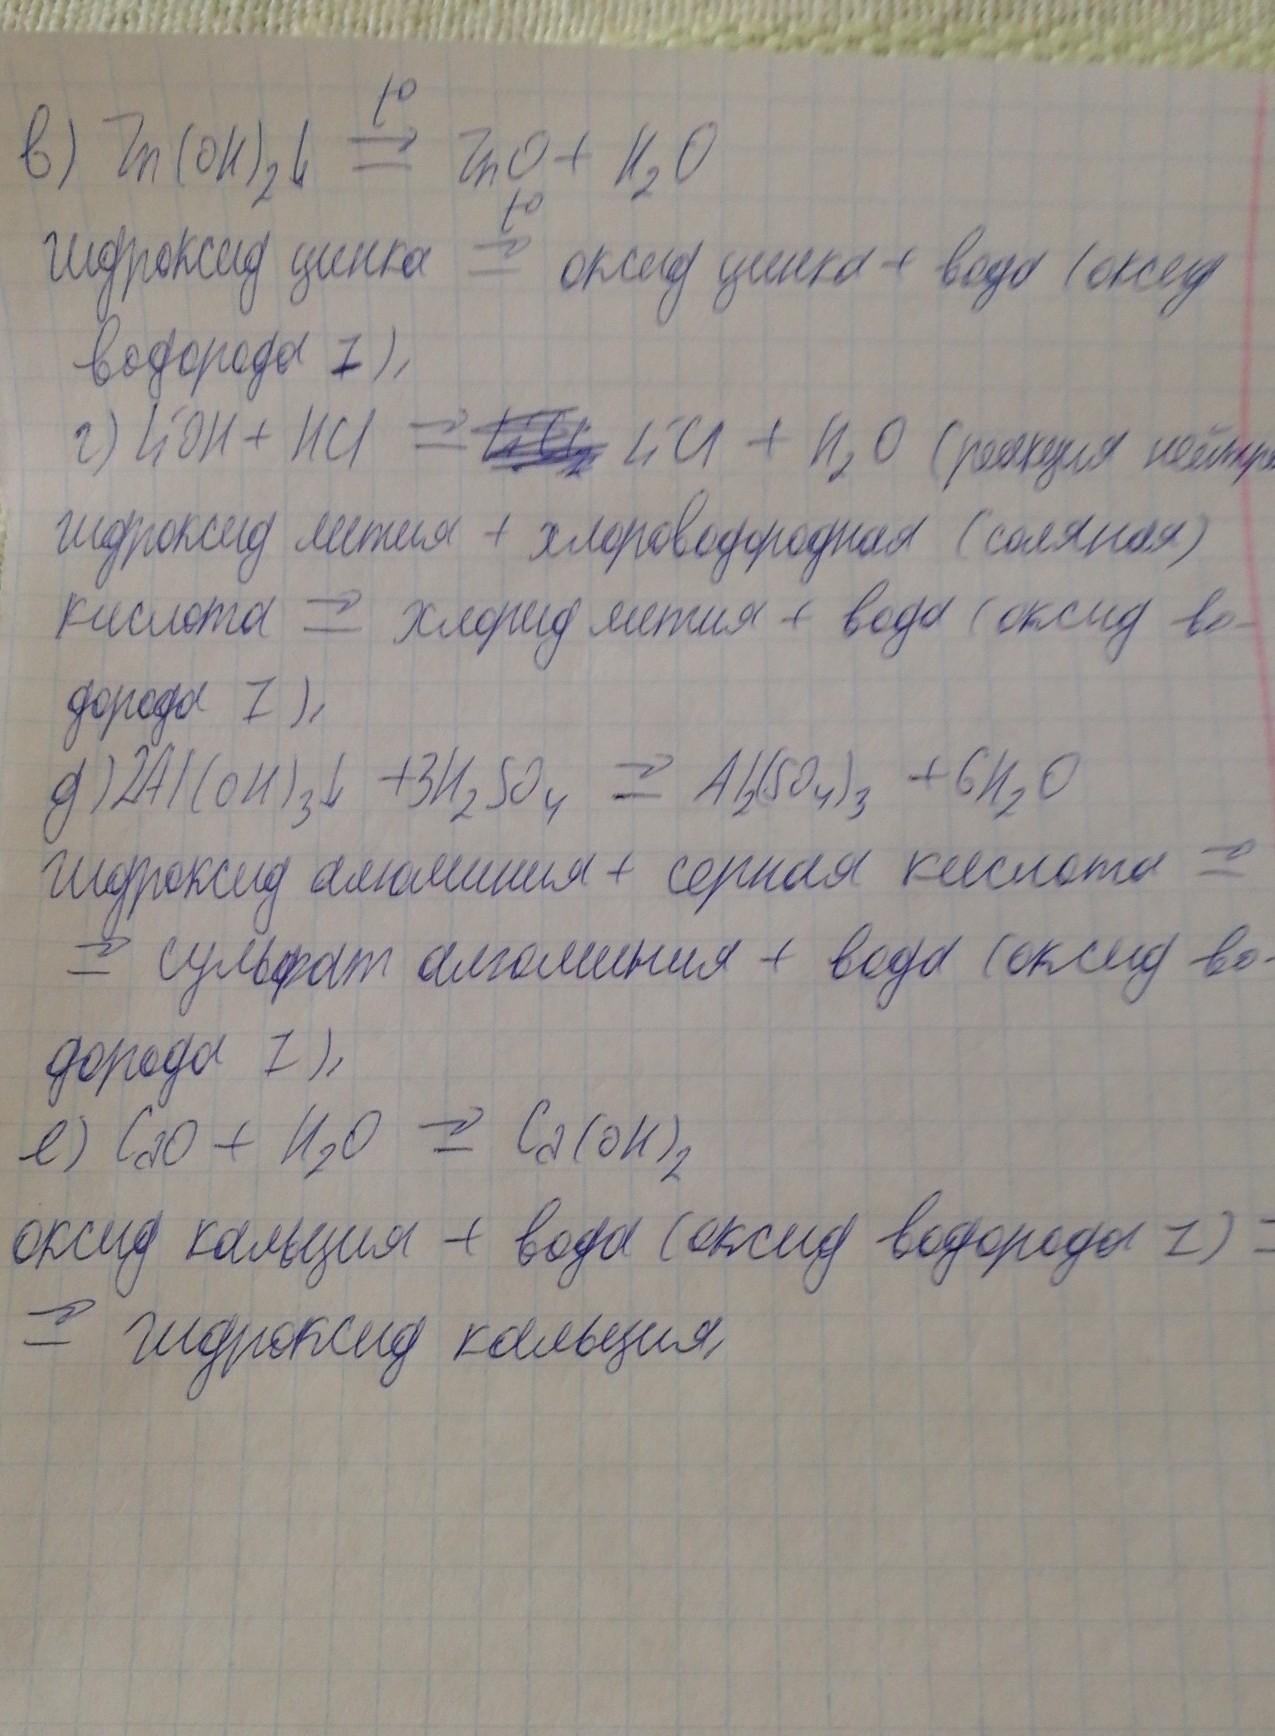 t°
в) Zn(OH)₂↓ ⇒ ZnO + H₂O
t°
гидроксид цинка ⇒ оксид цинка + вода (оксид
водорода I),
г) LiOH + HCl ⇒ LiCl + H₂O (реакция нейтра
гидроксид лития + хлороводородная (соляная)
кислота ⇒ хлорид лития + вода (оксид во-
дорода I),
д) 2Al(OH)₃↓ + 3H₂SO₄ ⇒ Al₂(SO₄)₃ + 6H₂O
гидроксид алюминия + серная кислота ⇒
⇒ сульфат алюминия + вода (оксид во-
дорода I),
е) CaO + H₂O ⇒ Ca(OH)₂
оксид кальция + вода (оксид водорода I) =
⇒ гидроксид кальция,